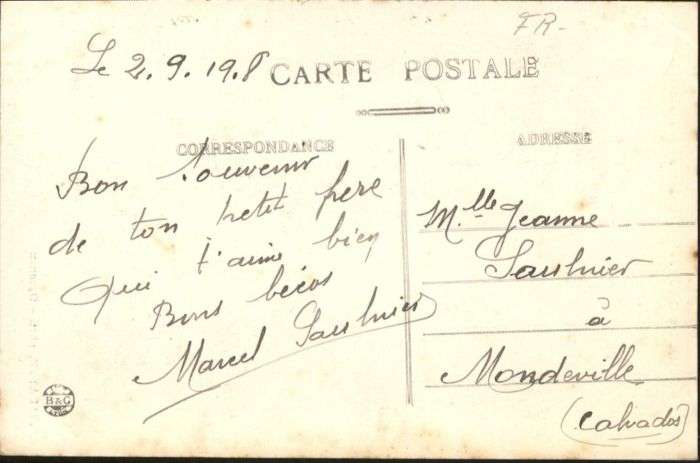 FR-
Le 2.9.19.8
CARTE POSTALE
CORRESPONDANCE
Bon Souvenir
de ton petit père
Qui t'aime bien
Bons bécos
Marcel Saulnier
B&G
ADRESSE
M.lle Jeanne
Saulnier
à
Mondeville
(Calvados)